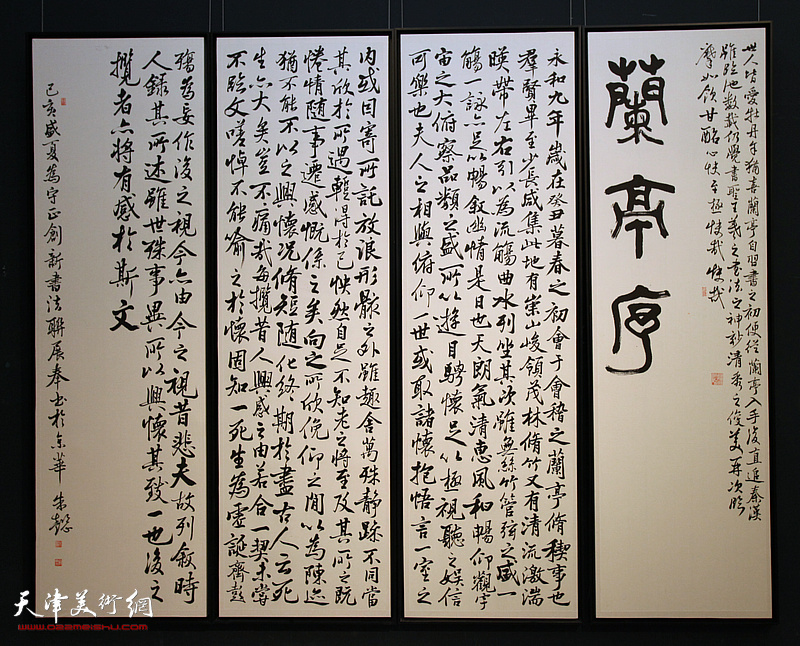 世人皆愛牡丹余猶喜蘭亭自習書之初便從蘭亭入手後直追秦漢
雖臨池數載仍覺書聖王羲之書法之神妙清秀之俊美再次臨
摩如飲甘酩心快至極快哉快哉
蘭亭序
永和九年歲在癸丑暮春之初會于會稽之蘭亭脩稧事也
羣賢畢至少長咸集此地有崇山峻領茂林脩竹又有清流激湍
暎帶左右引以為流觴曲水列坐其次雖無絲竹管弦之盛一
觴一詠亦足以暢敘幽情是日也天朗氣清惠風和暢仰觀宇
宙之大俯察品類之盛所以遊目騁懷足以極視聽之娛信
可樂也夫人之相與俯仰一世或取諸懷抱悟言一室之
內或因寄所託放浪形骸之外雖趣舍萬殊靜躁不同當
其欣於所遇暫得於己怏然自足不知老之將至及其所之既
惓情隨事遷感慨係之矣向之所欣俛仰之閒以為陳迹
猶不能不以之興懷況脩短隨化終期於盡古人云死
生亦大矣豈不痛哉每攬昔人興感之由若合一契未嘗
不臨文嗟悼不能喻之於懷固知一死生為虛誕齊彭
殤為妄作後之視今亦由今之視昔悲夫故列敘時
人錄其所述雖世殊事異所以興懷其致一也後之
攬者亦將有感於斯文
己亥盛夏為守正創新書法聯展奉書於京華 朱懿
天津美術網
www.022meishu.com